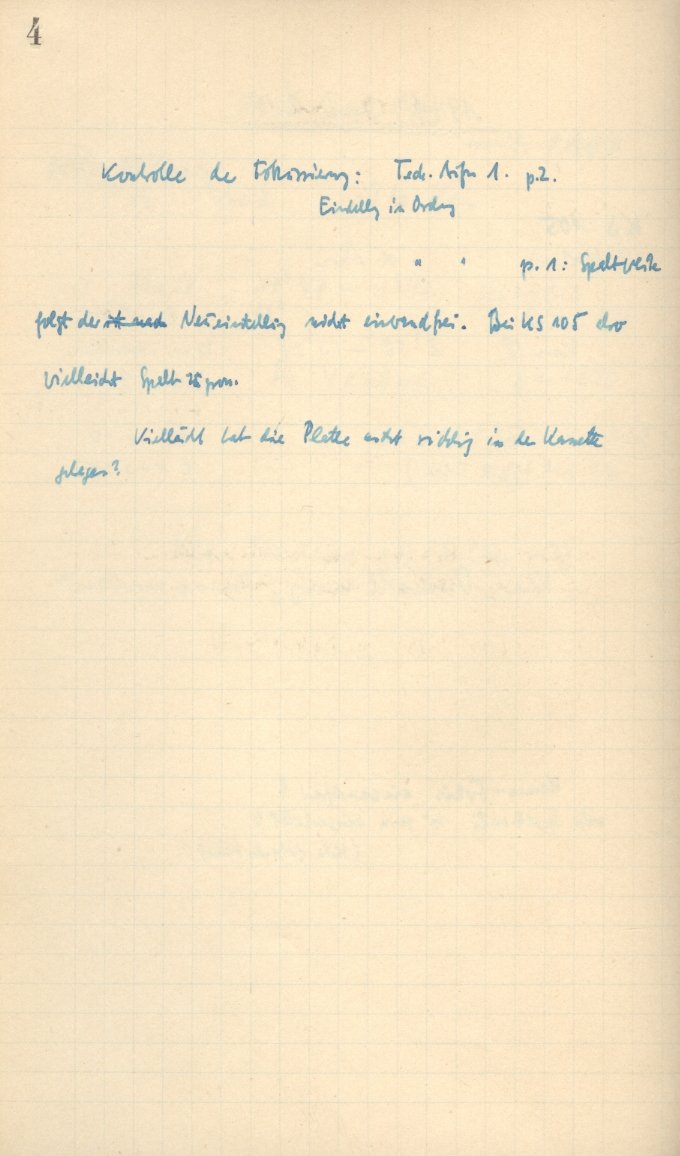 4
Kontrolle der Fokussierung: Tech. 1. p.2.
Einstellg in Ordng
" " p. 1: Spaltweite
folgt der Neueinstellung nicht einwandfrei. Bei KS 105 also
vielleicht Spalt 25
Vielleicht hat die Platte nicht richtig in der Kassette
gelegen?